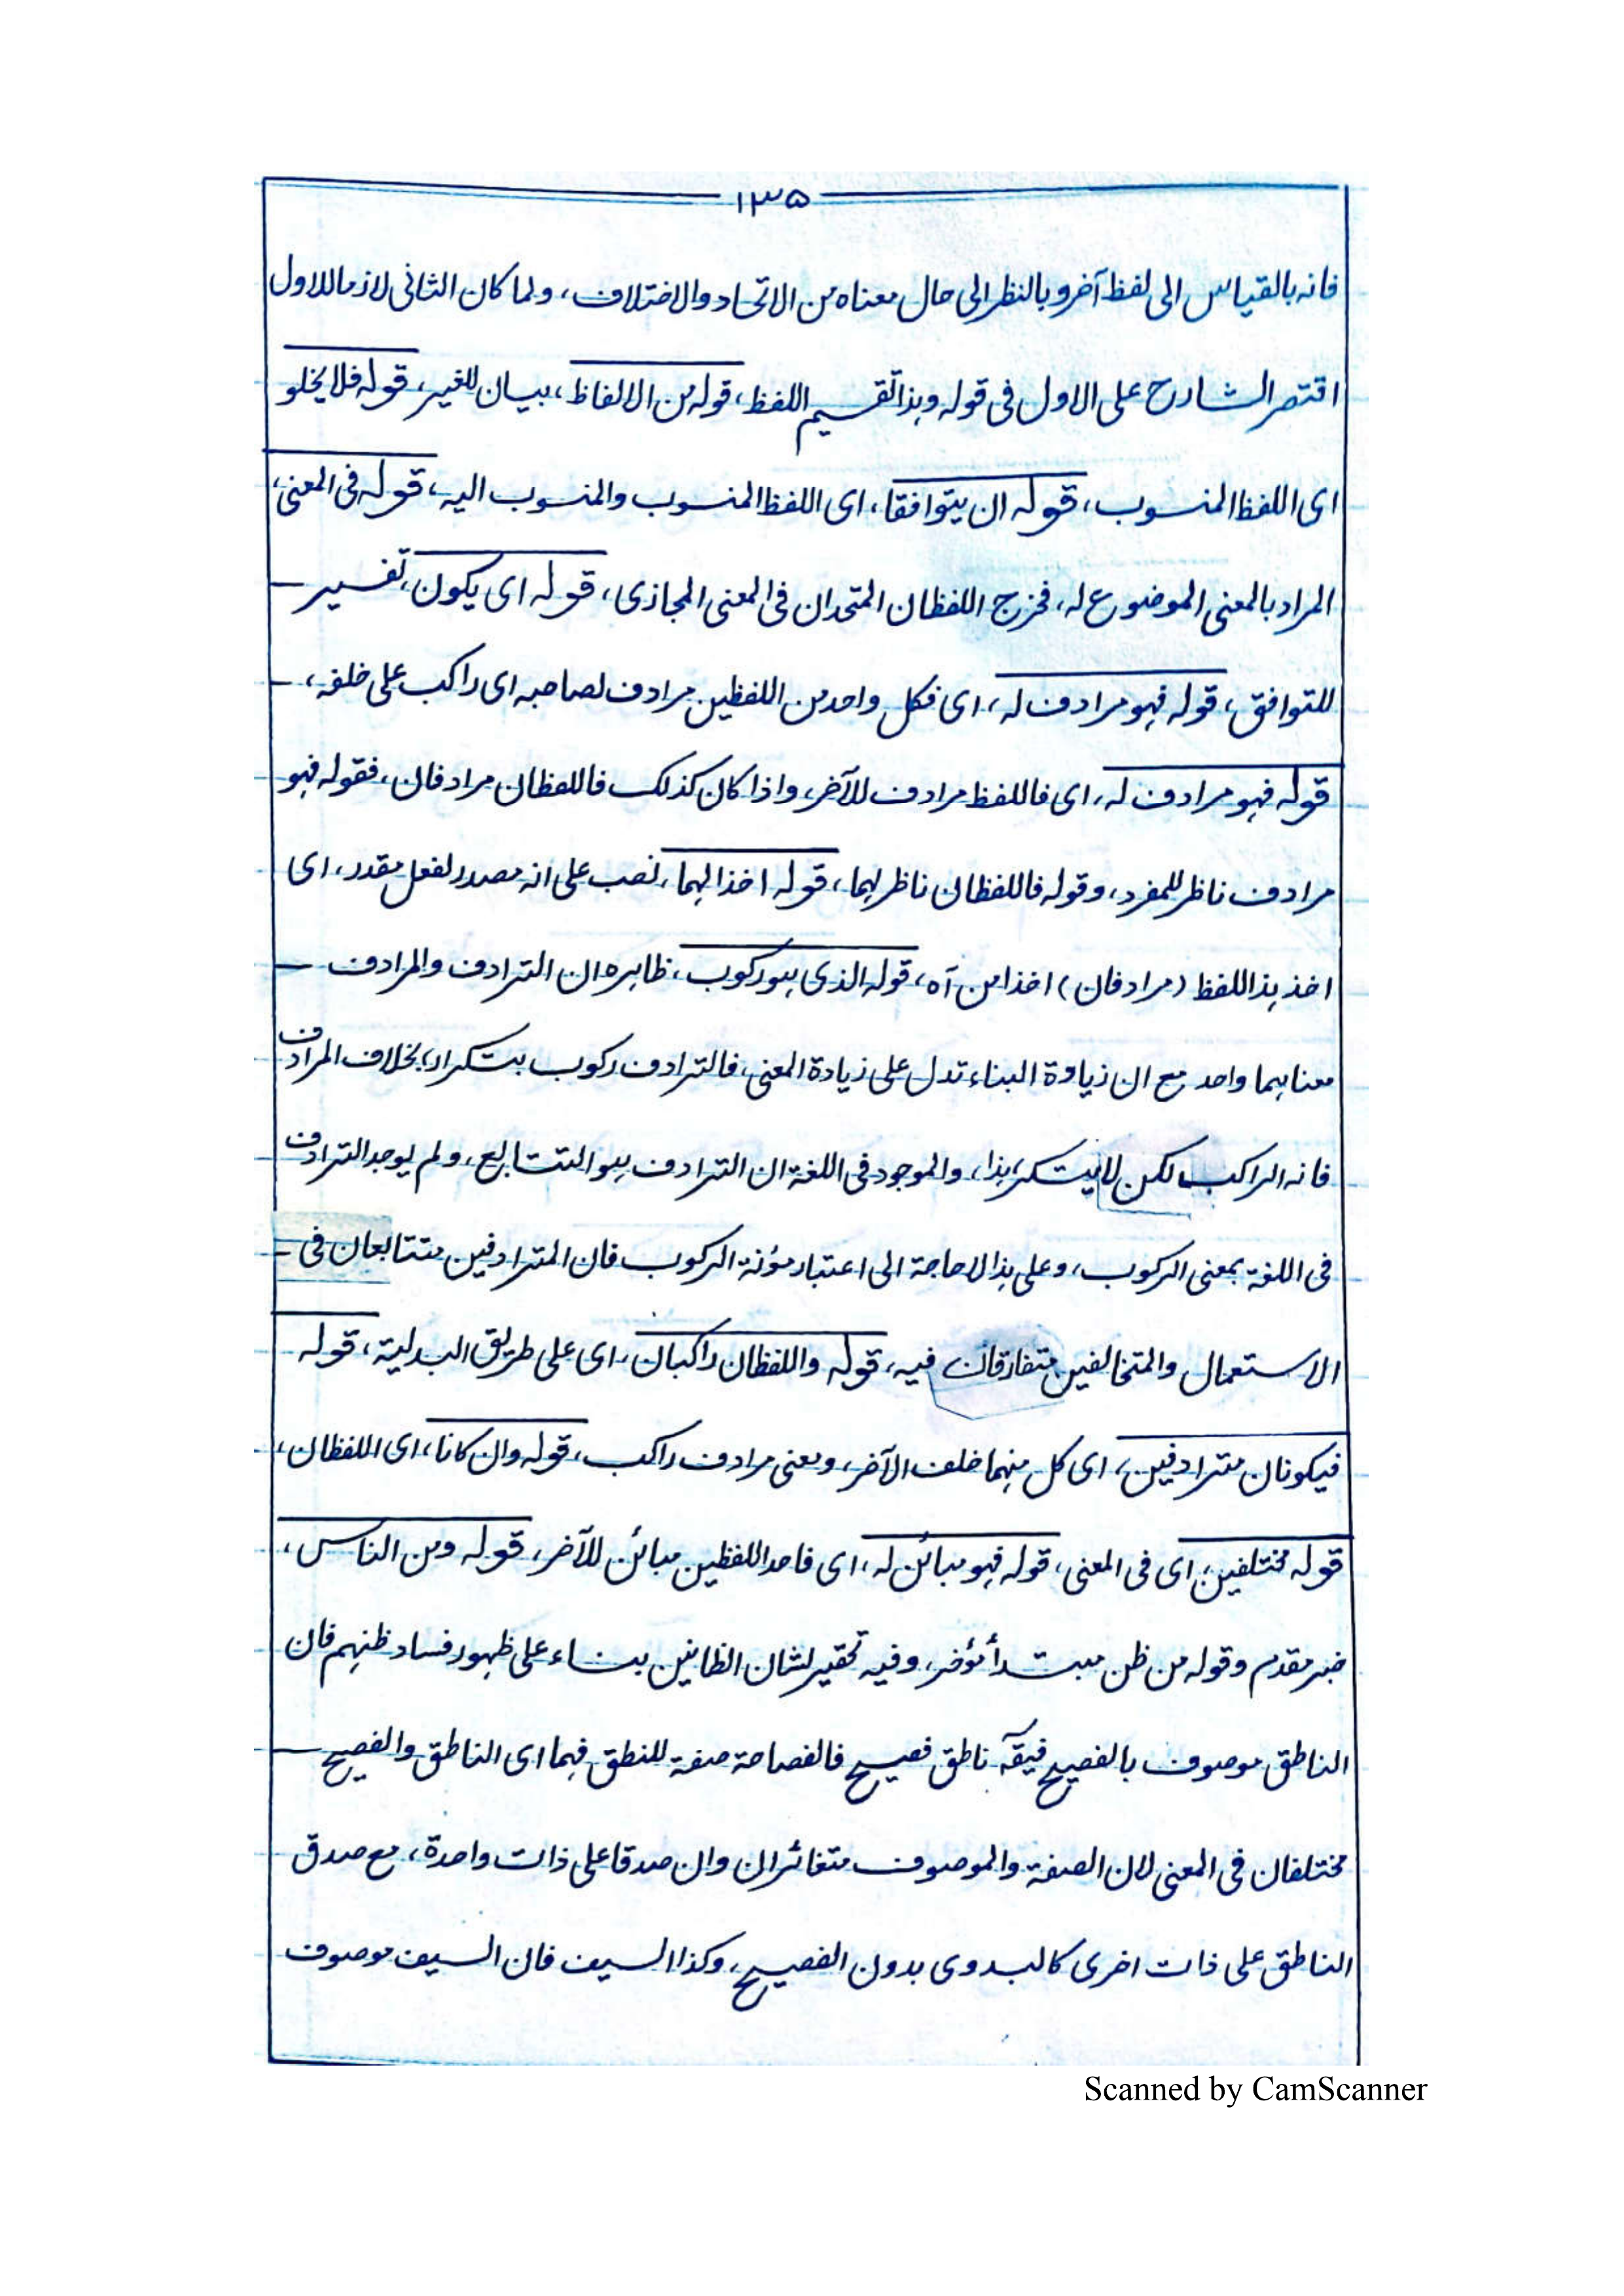 ١٣٥
فانه بالقياس الى لفظ آخر وبالنظر الى حال معناه من الاتحاد والاختلاف، ولما كان الثانى لازما للاول
اقتصر الشارح على الاول فى قوله وہذا تقسيم اللفظ، قوله من الالفاظ، بيان للغير، قوله فلا يخلو
اى اللفظ المنسوب، قوله ان يتوافقا، اى اللفظ المنسوب والمنسوب اليه، قوله فى المعنى،
المراد بالمعنى الموضوع له، فخرج اللفظان المتحدان فى المعنى المجازى، قوله اى يكون، تفسير
للتوافق، قوله فہو مرادف له، اى فكل واحد من اللفظين مرادف لصاحبه اى راكب على خلفه،
قوله فہو مرادف له، اى فاللفظ مرادف للآخر، واذا كان كذلك فاللفظان مرادفان، فقوله فہو
مرادف ناظر للمفرد، وقوله فاللفظان ناظر لہما، قوله اخذا لہما، نصب على انه مصدر لفعل مقدر، اى
اخذ ہذا اللفظ (مرادفان) اخذا من آه، قوله الذى ہو ركوب، ظاہره ان الترادف والمرادف
معناہما واحد مع ان زيادة البناء تدل على زيادة المعنى، فالترادف ركوب بتكرار، بخلاف المرادف
فانه الراكب لكن لا يتكرر، ہذا، والموجود فى اللغة ان الترادف ہو التتابع، ولم يوجد الترادف
فى اللغة بمعنى الركوب، وعلى ہذا لا حاجة الى اعتبار مؤنة الركوب فان المترادفين متتابعان فى
الاستعمال والمتخالفين متفارقان فيه، قوله واللفظان راكبان، اى على طريق البدلية، قوله
فيكونان مترادفين، اى كل منہما خلف الآخر، ومعنى مرادف راكب، قوله وان كانا، اى اللفظان،
قوله مختلفين، اى فى المعنى، قوله فہو مبائن له، اى فاحد اللفظين مبائن للآخر، قوله ومن الناس،
خبر مقدم وقوله من ظن مبتدأ مؤخر، وفيه تحقير لشان الظانين بناء على ظہور فساد ظنہم فان
الناطق موصوف بالفصيح فيقآ ناطق فصيح فالفصاحة صفة للنطق فہما اى الناطق والفصيح
مختلفان فى المعنى لان الصفة والموصوف متغائران وان صدقا على ذات واحدة، مع صدق
الناطق على ذات اخرى كالبدوى بدون الفصيح، وكذا السيف فان السيف موصوف
Scanned by CamScanner